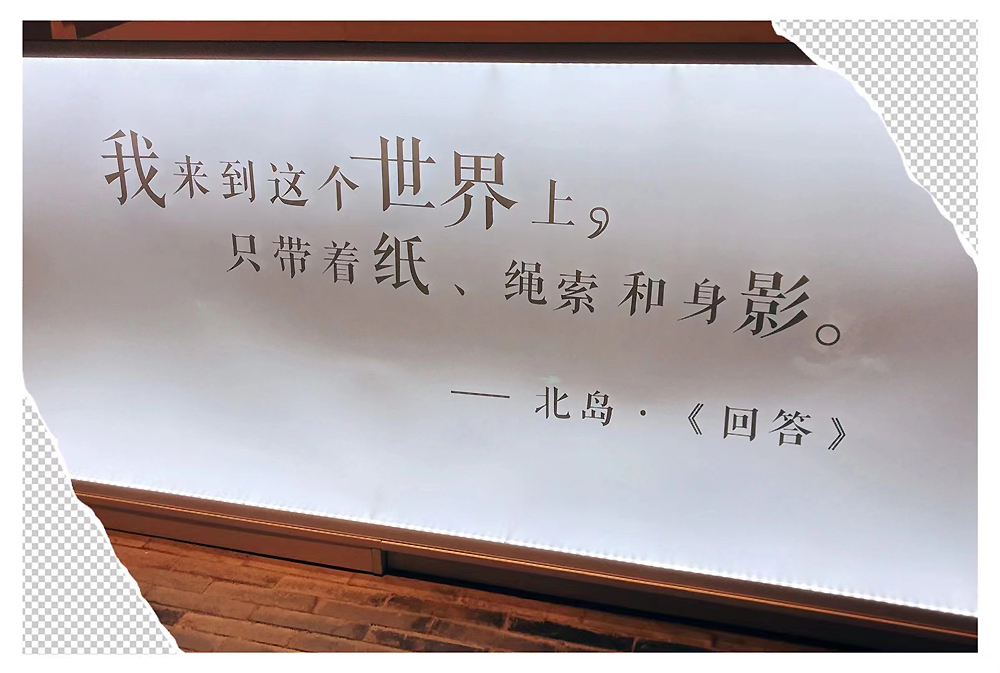 我来到这个世界上，
只带着纸、绳索和身影。
—— 北岛·《回答》